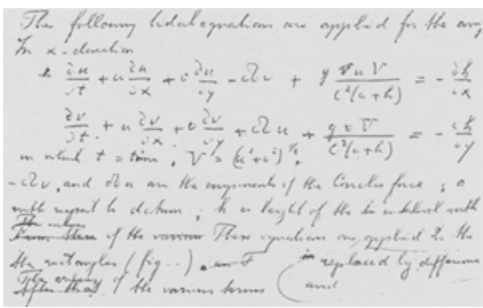 The following tidal equations are applied for the
In x-direction
∂u/∂t + u ∂u/∂x + v ∂u/∂y - Ωv + g u V / C²(a+h) = - ∂h/∂x
∂v/∂t + u ∂v/∂x + v ∂v/∂y + Ωu + g v V / C²(a+h) = - ∂h/∂y
in which t = time, V = (u²+v²)^½,
-Ωv, and Ωu are the components of the Coriolis force; a
with respect to datum; h is height of the with
of the various These equations are applied to the
the rectangles (fig ..). replaced by difference
of the various terms and